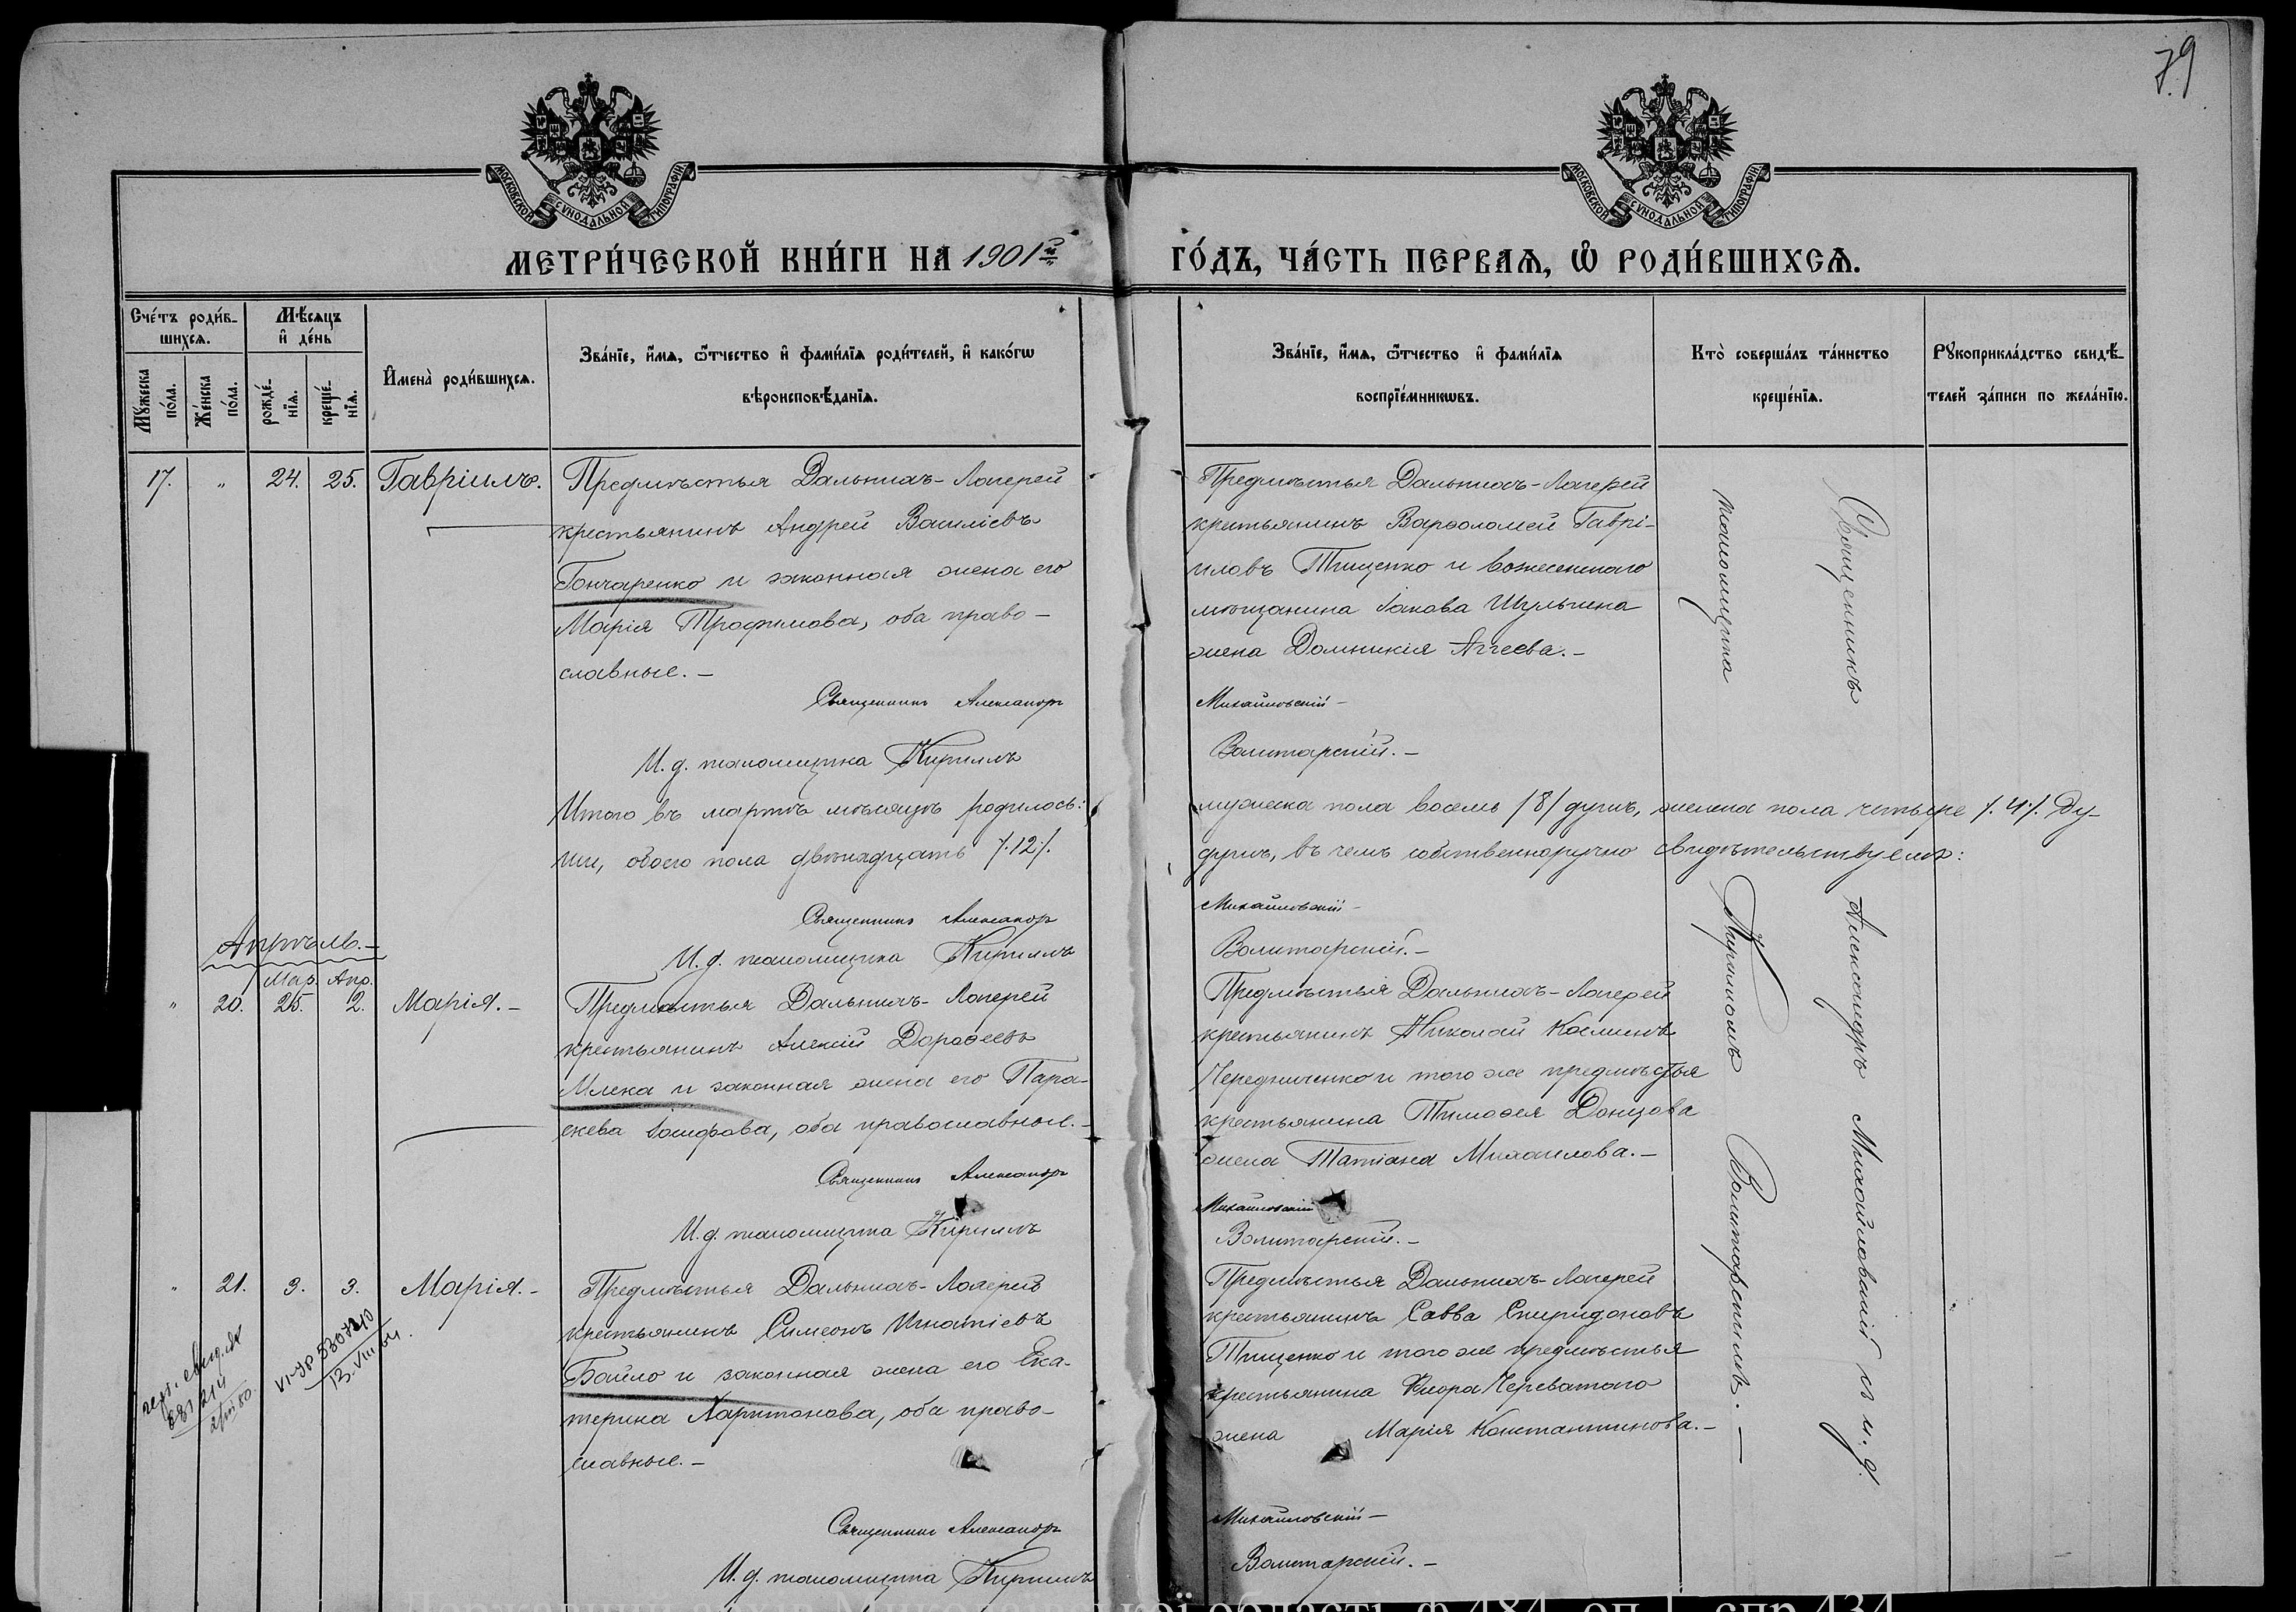 79
МОСКОВСКОЙ СѴНОДАЛЬНОЙ ТИПОГРАФІИ
МОСКОВСКОЙ СѴНОДАЛЬНОЙ ТИПОГРАФІИ
МЕТРИ́ЧЕСКОЙ КНИ́ГИ НА 1901й ГО́ДЪ, ЧА́СТЬ ПЕРВАѦ, Ѡ҆ РОДИ́ВШИХСѦ.
Сче́тъ роди́в-
шихсѧ.
Мꙋ́жеска по́ла.
Же́нска по́ла.
Мѣ́сѧцъ
и҆ де́нь
рожде́-
нїѧ.
креще́-
нїѧ.
И҆мена̀ роди́вшихсѧ.
Зва́нїе, и҆́мѧ, ѻ҆́тчество и҆ фами́лїѧ роди́телей, и҆ како́гѡ
вѣроисповѣ́данїѧ.
Зва́нїе, и҆́мѧ, ѻ҆́тчество и҆ фами́лїѧ
воспрїе́мникѡвъ.
Кто̀ соверша́лъ та́инство
креще́нїѧ.
Рꙋкоприкла́дство свидѣ́-
телей за́писи по жела́нїю.
17. " 24. 25. Гавріилъ.
Предмѣстья Дальнихъ-Лагерей
крестьянинъ Андрей Василіевъ
Гончаренко и законная жена его
Марія Трофимова, оба право-
славные.-
Священникъ Александръ
И. д. псаломщика Кириллъ
Предмѣстья Дальнихъ-Лагерей
крестьянинъ Варѳоломей Гаврі-
иловъ Тищенко и вознесенскаго
мѣщанина Іакова Шульгина
жена Домникія Аггеева.-
Михайловскій-
Волитарскій.-
Итого въ мартѣ мѣсяцѣ родилось: мужеска пола восемь /8/ душъ, женска пола четыре /.4./. Ду-
ши, обоего пола двѣнадцать /.12./. душъ, въ чемъ собственноручно свидѣтельствуемъ:
Священникъ Александръ Михайловскій-
И. д. псаломщика Кириллъ Волитарскій.-
Апрѣль.-
Мар. Апр.
" 20. 25. 2. Марія.-
Предмѣстья Дальнихъ-Лагерей
крестьянинъ Алексій Дороѳеевъ
Млека и законная жена его Пара-
скева Іосифова, оба православные.-
Священникъ Александръ
И. д. псаломщика Кириллъ
Предмѣстья Дальнихъ-Лагерей
крестьянинъ Николай Косминъ
Чередниченко и того же предмѣстья
крестьянина Тимоѳея Донцова
жена Татіана Михаилова.-
Михайловскій
Волитарскій.-
" 21. 3. 3. Марія.-
Предмѣстья Дальнихъ-Лагерей
крестьянинъ Симеонъ Игнатіевъ
Байло и законная жена его Ека-
терина Харитонова, оба право-
славные.-
Священникъ Александръ
И. д. псаломщика Кириллъ
Предмѣстья Дальнихъ-Лагерей
крестьянинъ Савва Спиридоновъ
Тищенко и того же предмѣстья
крестьянина Флора Череватаго
жена Марія Константинова.-
Михайловскій-
Волитарскій.-
Священникъ Александръ Михайловскій съ и. д.
псаломщика Кирилломъ Волитарскимъ.-
13.VIII 64.